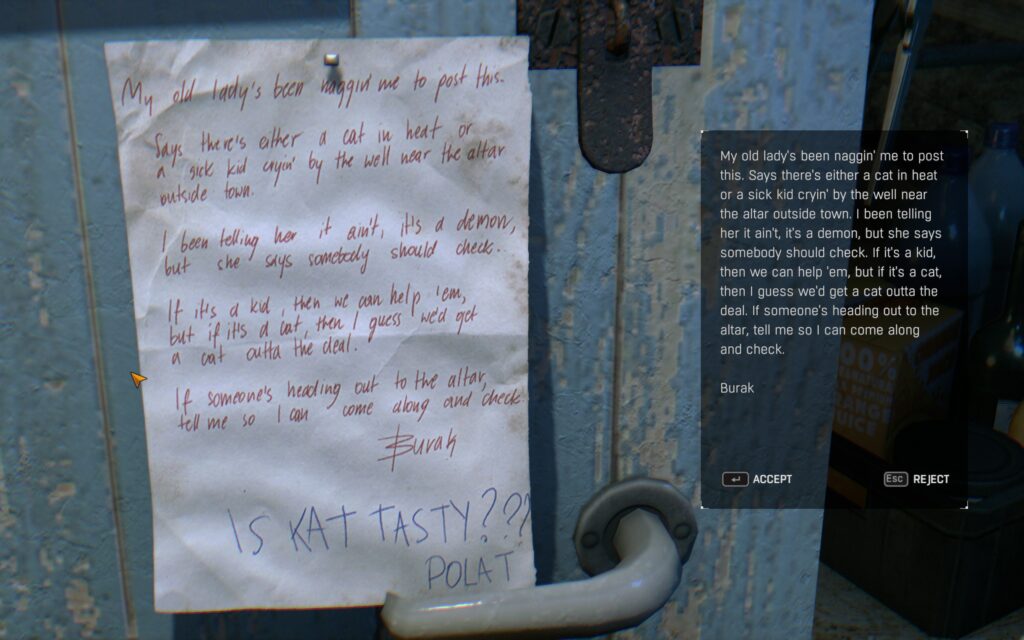 My old lady's been naggin' me to post this.
Says there's either a cat in heat or
a sick kid cryin' by the well near the altar
outside town.
I been telling her it ain't, it's a demon,
but she says somebody should check.
If it's a kid, then we can help 'em,
but if it's a cat, then I guess we'd get
a cat outta the deal.
If someone's heading out to the altar,
tell me so I can come along and check.
Burak
IS KAT TASTY???
POLAT
My old lady's been naggin' me to post
this. Says there's either a cat in heat
or a sick kid cryin' by the well near
the altar outside town. I been telling
her it ain't, it's a demon, but she says
somebody should check. If it's a kid,
then we can help 'em, but if it's a cat,
then I guess we'd get a cat outta the
deal. If someone's heading out to the
altar, tell me so I can come along
and check.
Burak
ACCEPT
Esc REJECT
100%
JUICE